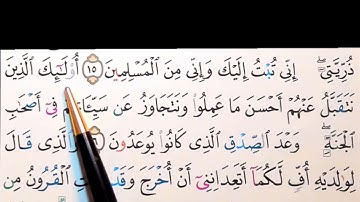 ذُرِّيَّتِيٓۖ إِنِّي تُبۡتُ إِلَيۡكَ وَإِنِّي مِنَ ٱلۡمُسۡلِمِينَ ١٥ أُوْلَـٰٓئِكَ ٱلَّذِينَ
نَتَقَبَّلُ عَنۡهُمۡ أَحۡسَنَ مَا عَمِلُواْ وَنَتَجَاوَزُ عَن سَيِّـَٔاتِهِمۡ فِيٓ أَصۡحَٰبِ
ٱلۡجَنَّةِۖ وَعۡدَ ٱلصِّدۡقِ ٱلَّذِي كَانُواْ يُوعَدُونَ وَٱلَّذِي قَالَ
لِوَٰلِدَيۡهِ أُفّٖ لَّكُمَآ أَتَعِدَانِنِيٓ أَنۡ أُخۡرَجَ وَقَدۡ خَلَتِ ٱلۡقُرُونُ مِن